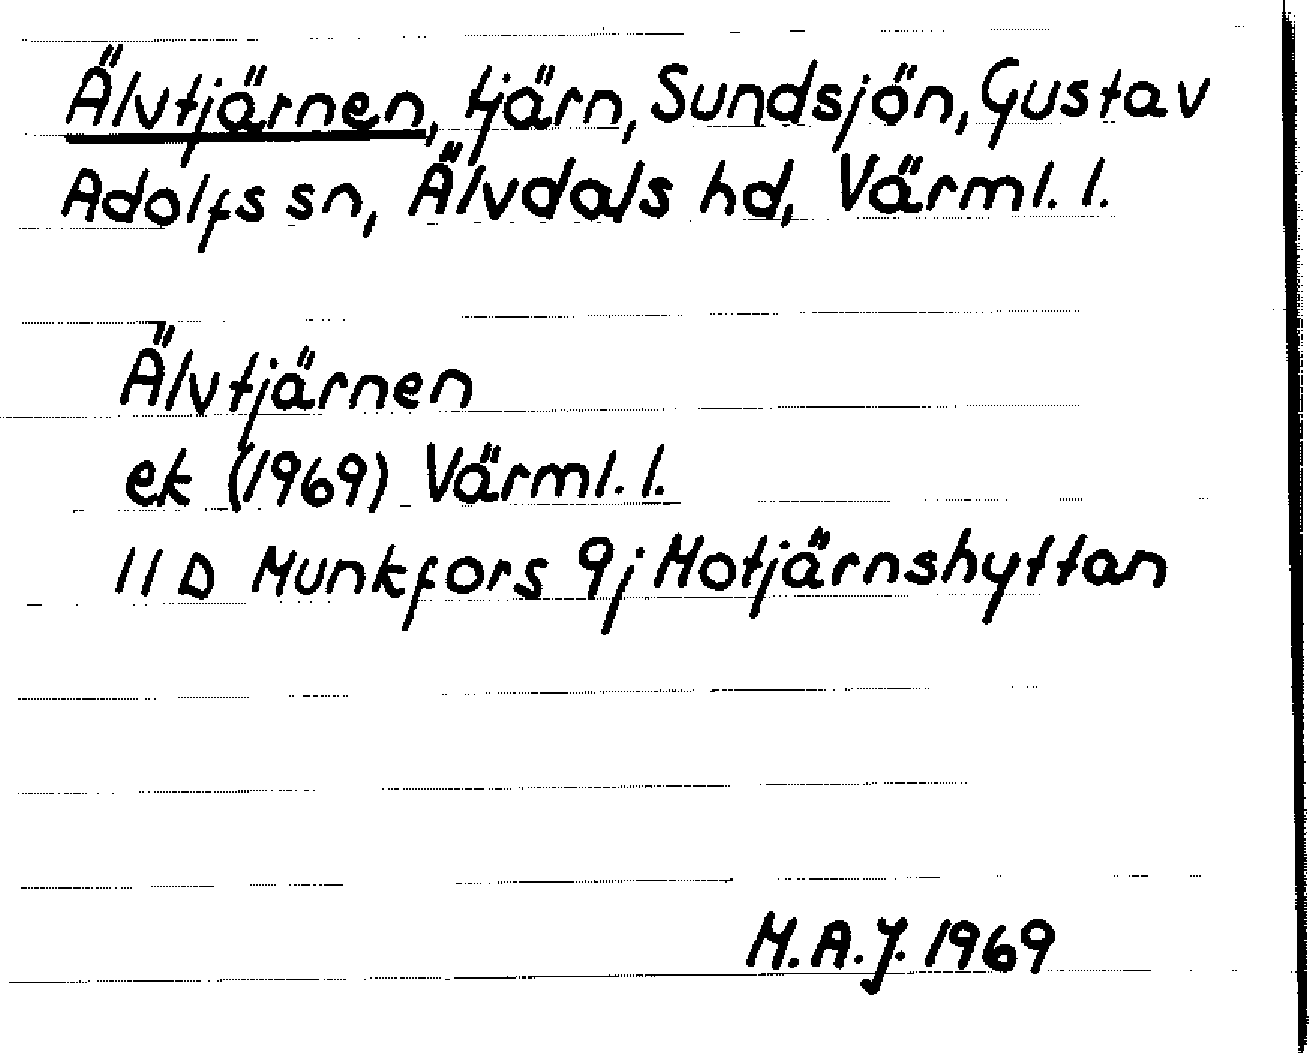 Älvtjärnen, tjärn, Sundsjön, Gustav
Adolfs sn, Älvdals hd, Värml. l.
Älvtjärnen
ek (1969) Värml. l.
11 D Munkfors 9j Motjärnshyttan
M.A.J. 1969